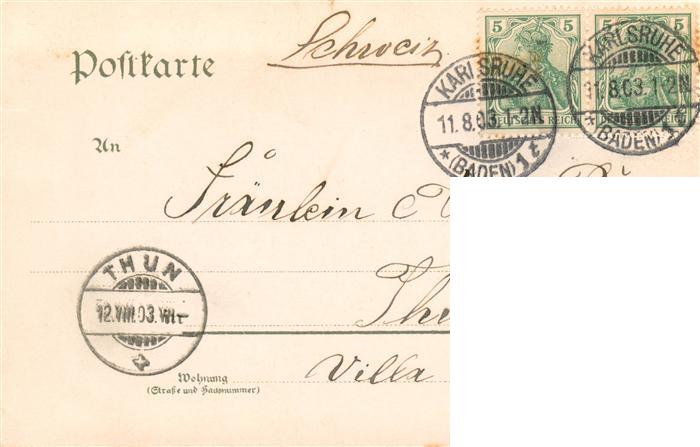 Schweiz
5 5 5
Postkarte
KARLSRUHE
11.8.03.1-2N
*(BADEN)1t
KARLSRUHE
11.8.03.1-2N
*(BADEN)1t
DEUTSCHES REICH
An
Fräulein
THUN
12.VIII.03.VII-
Villa
Wohnung
(Straße und Hausnummer)